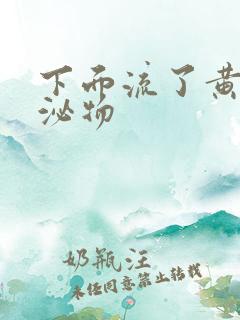 下面流了黄
泌物
奶瓶汪
未经同意禁止转载